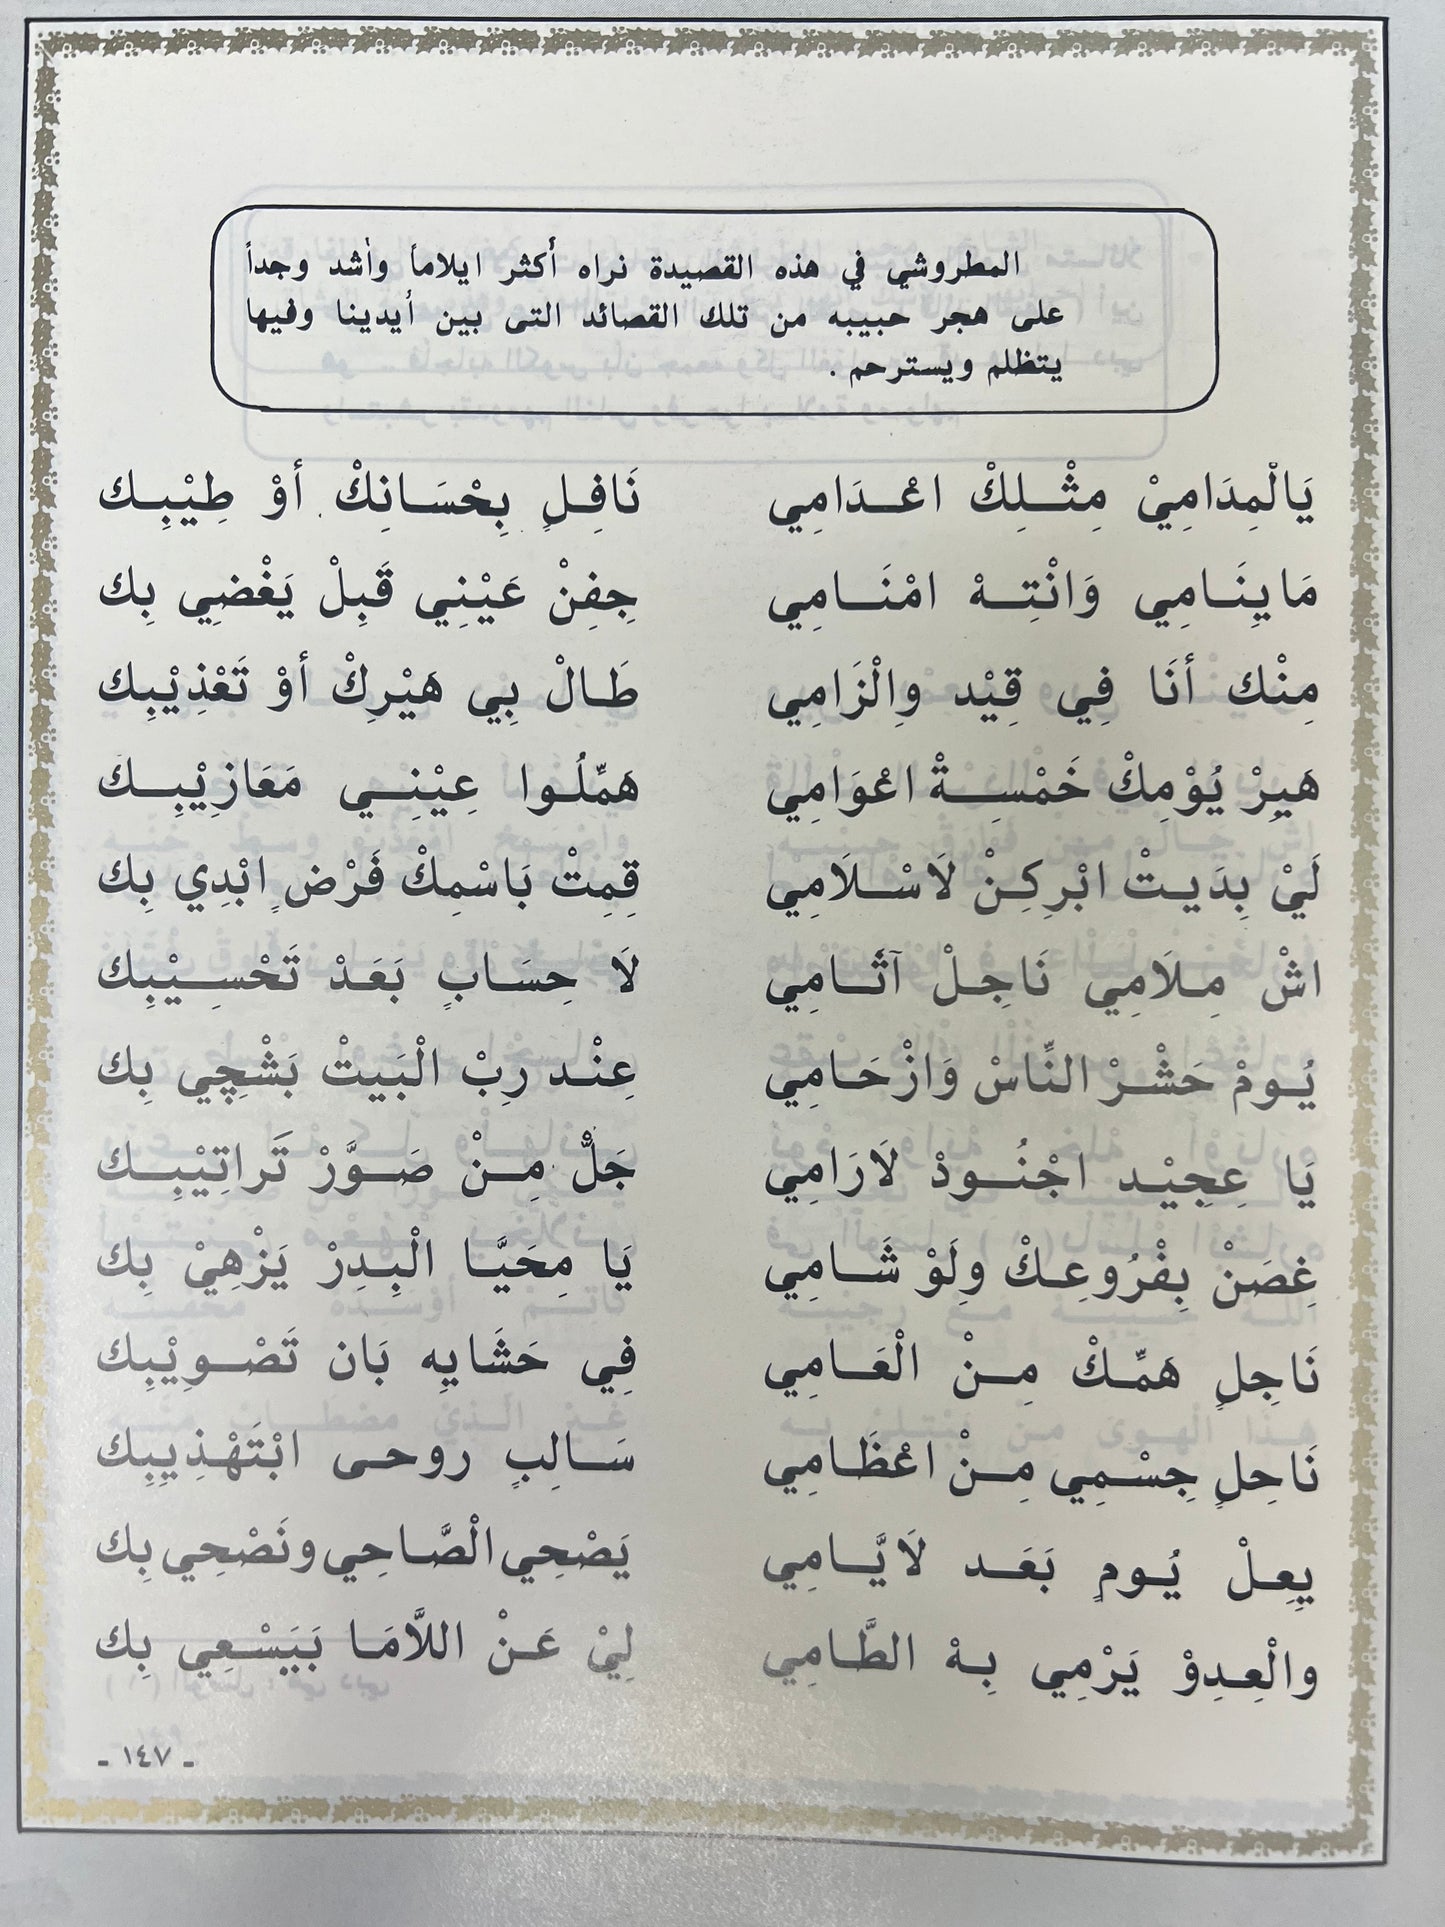 المطروشي في هذه القصيدة نراه أكثر ايلاماً وأشد وجداً
على هجر حبيبه من تلك القصائد التى بين أيدينا وفيها
يتظلم ويسترحم .
يَالْمِدَامِيْ مِثْلِكْ اعْدَامِي نَافِلٍ بِحْسَانِكْ أوْ طِيْبِك
مَا يِنَامِي وَانْتِهْ امْنَامِي جِفِنْ عَيْنِي قَبِلْ يَغْضِي بِك
مِنْك أنَا فِي قِيْد وِالْزَامِي طَالْ بِي هَيْرِكْ أوْ تَعْذِيْبِك
هَيِرْ يُوْمِكْ خَمْسِةْ اعْوَامِي هَمِّلُوا عِيْنِي مَعَازِيْبِك
لَيْ بِدَيتْ ابْركِنْ لَاسْلَامِي قِمِتْ بَاسْمِكْ فَرْضٍ ابْدِي بِك
اشْ مِلَامِي نَاجِلْ آثَامِي لَا حِسَابٍ بَعَدْ تَحْسِيْبِك
يُومْ حَشْرْ النِّاسْ وَازْحَامِي عِنْد رِبْ الْبَيتْ بَشْچِي بِك
يَا عِجِيْد اجْنُودْ لَارَامِي جَلّْ مِنْ صَوَّرْ تَراتِيْبِك
غِصَنْ بِفْرُوعِكْ ولَوْ شَامِي يَا مِحَيَّا الْبِدِرْ يَزْهِيْ بِك
نَاجِلٍ هَمِّكْ مِنْ الْعَامِي فِي حَشَايِه بَان تَصْوِيْبِك
نَاحِلٍ جِسْمِي مِنْ اعْظَامِي سَالِبٍ روحى ابْتَهْذِيبِك
يِعِلْ يُومٍ بَعَد لَايَّامِي يَصْحِي الْصَّاحِي ونَصْحِي بِك
والْعِدِوْ يَرْمِي بِهْ الطَّامِي لِيْ عَنْ اللاَّمَا بَيَسْعِي بِك
- ١٤٧ -